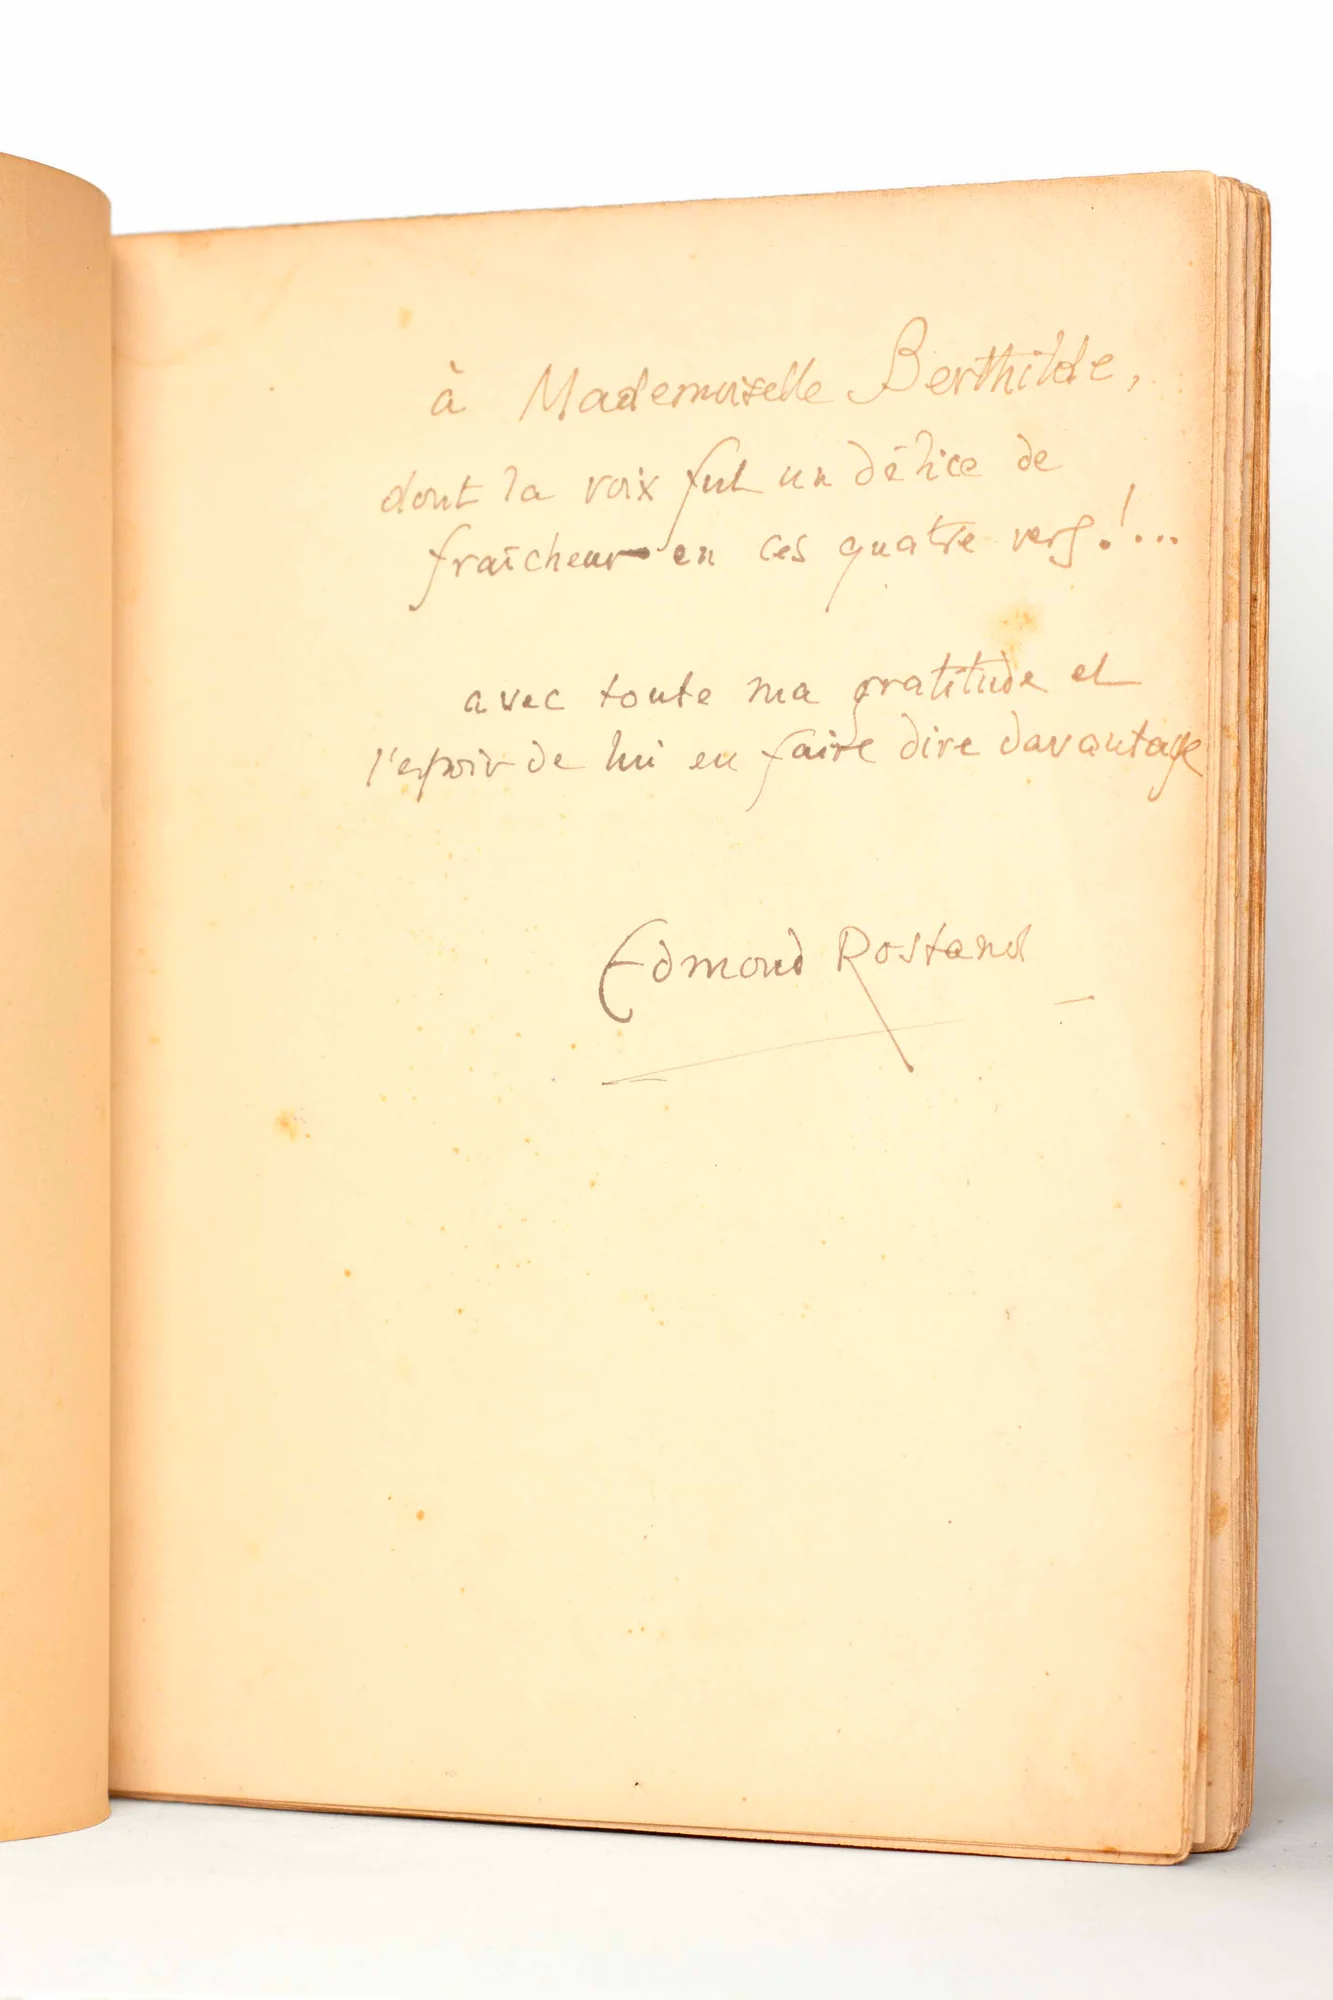 à Mademoiselle Berthilde,
dont la voix fut un délice de
fraîcheur en ces quatre vers !...
avec toute ma gratitude et
l'espoir de lui en faire dire davantage
Edmond Rostand